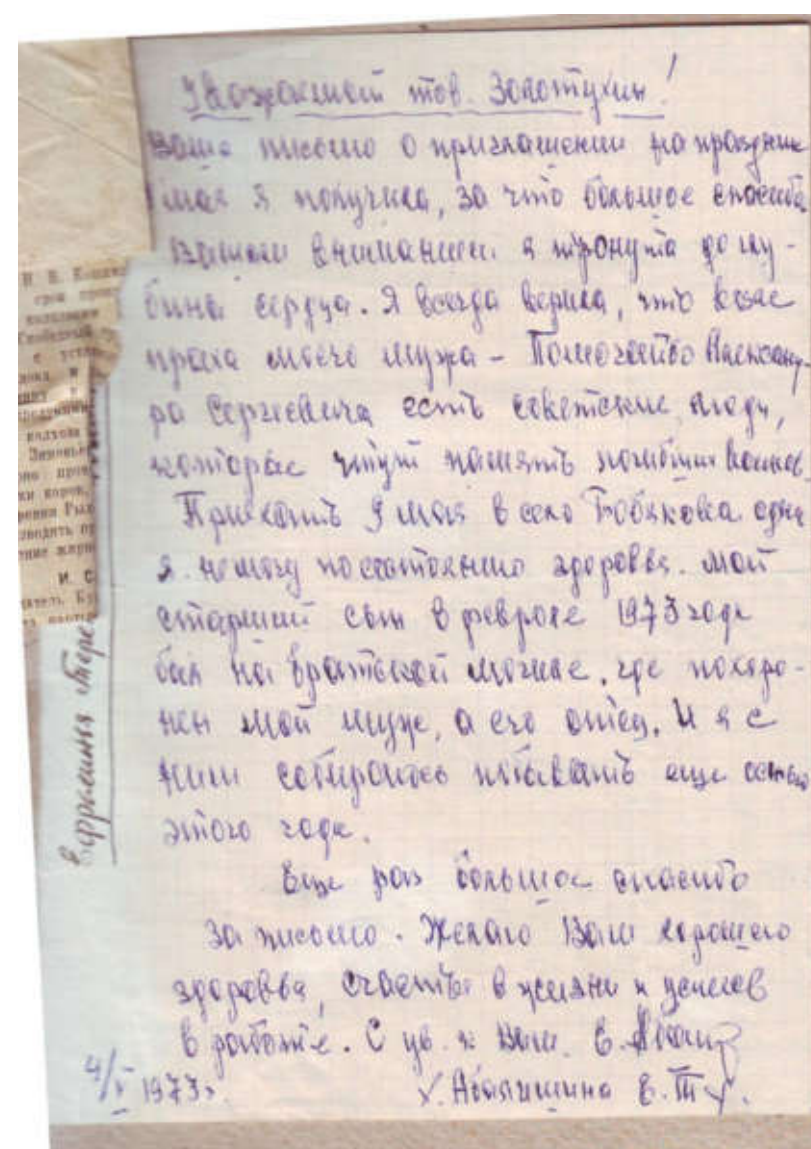 Уважаемый тов. Золотухин!
Ваше письмо о приглашении на праздник
мая я получила, за что большое спасибо
Вашим вниманием я тронута до глу-
бины сердца. Я всегда верила, что возле
праха моего мужа - Александ-
ра Сергеевича есть советские люди,
которые чтут память погибших воинов
Приехать 9 мая в село Бобяково одна
я не могу по состоянию здоровья. Мой
старший сын в феврале 1973 года
был на братской могиле, где похоро-
нен мой муж, а его отец. И я с
ним собираюсь побывать еще
этого года.
Еще раз большое спасибо
за письмо. Желаю Вам хорошего
здоровья, счастья в жизни и успехов
в работе. С ув. к Вам. Е.
4/V 1973г. Е. Т
Ефросинья
И. В.
срок
Свободный
с
и
колхоза
Зиновье
ки коров,
ение
И. С